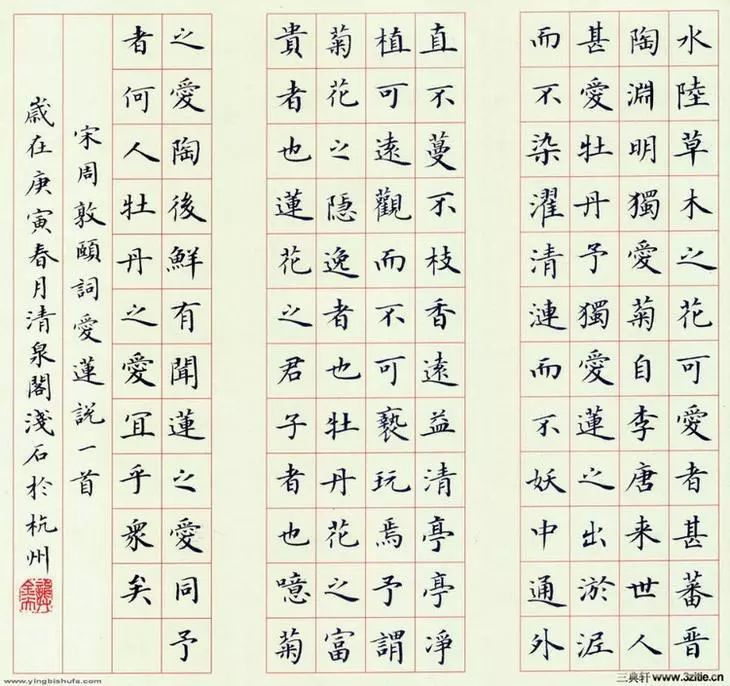 水陸草木之花可愛者甚蕃晋
陶淵明獨愛菊自李唐来世人
甚愛牡丹予獨愛蓮之出淤泥
而不染濯清漣而不妖中通外
直不蔓不枝香遠益清亭亭凈
植可遠觀而不可褻玩焉予謂
菊花之隱逸者也牡丹花之富
貴者也蓮花之君子者也噫菊
之愛陶後鮮有聞蓮之愛同予
者何人牡丹之愛冝乎衆矣
宋周敦頤詞愛蓮説一首
歲在庚寅春月清泉閣淺石於杭州
www.yingbishufa.com
三典轩 www.3zitie.cn